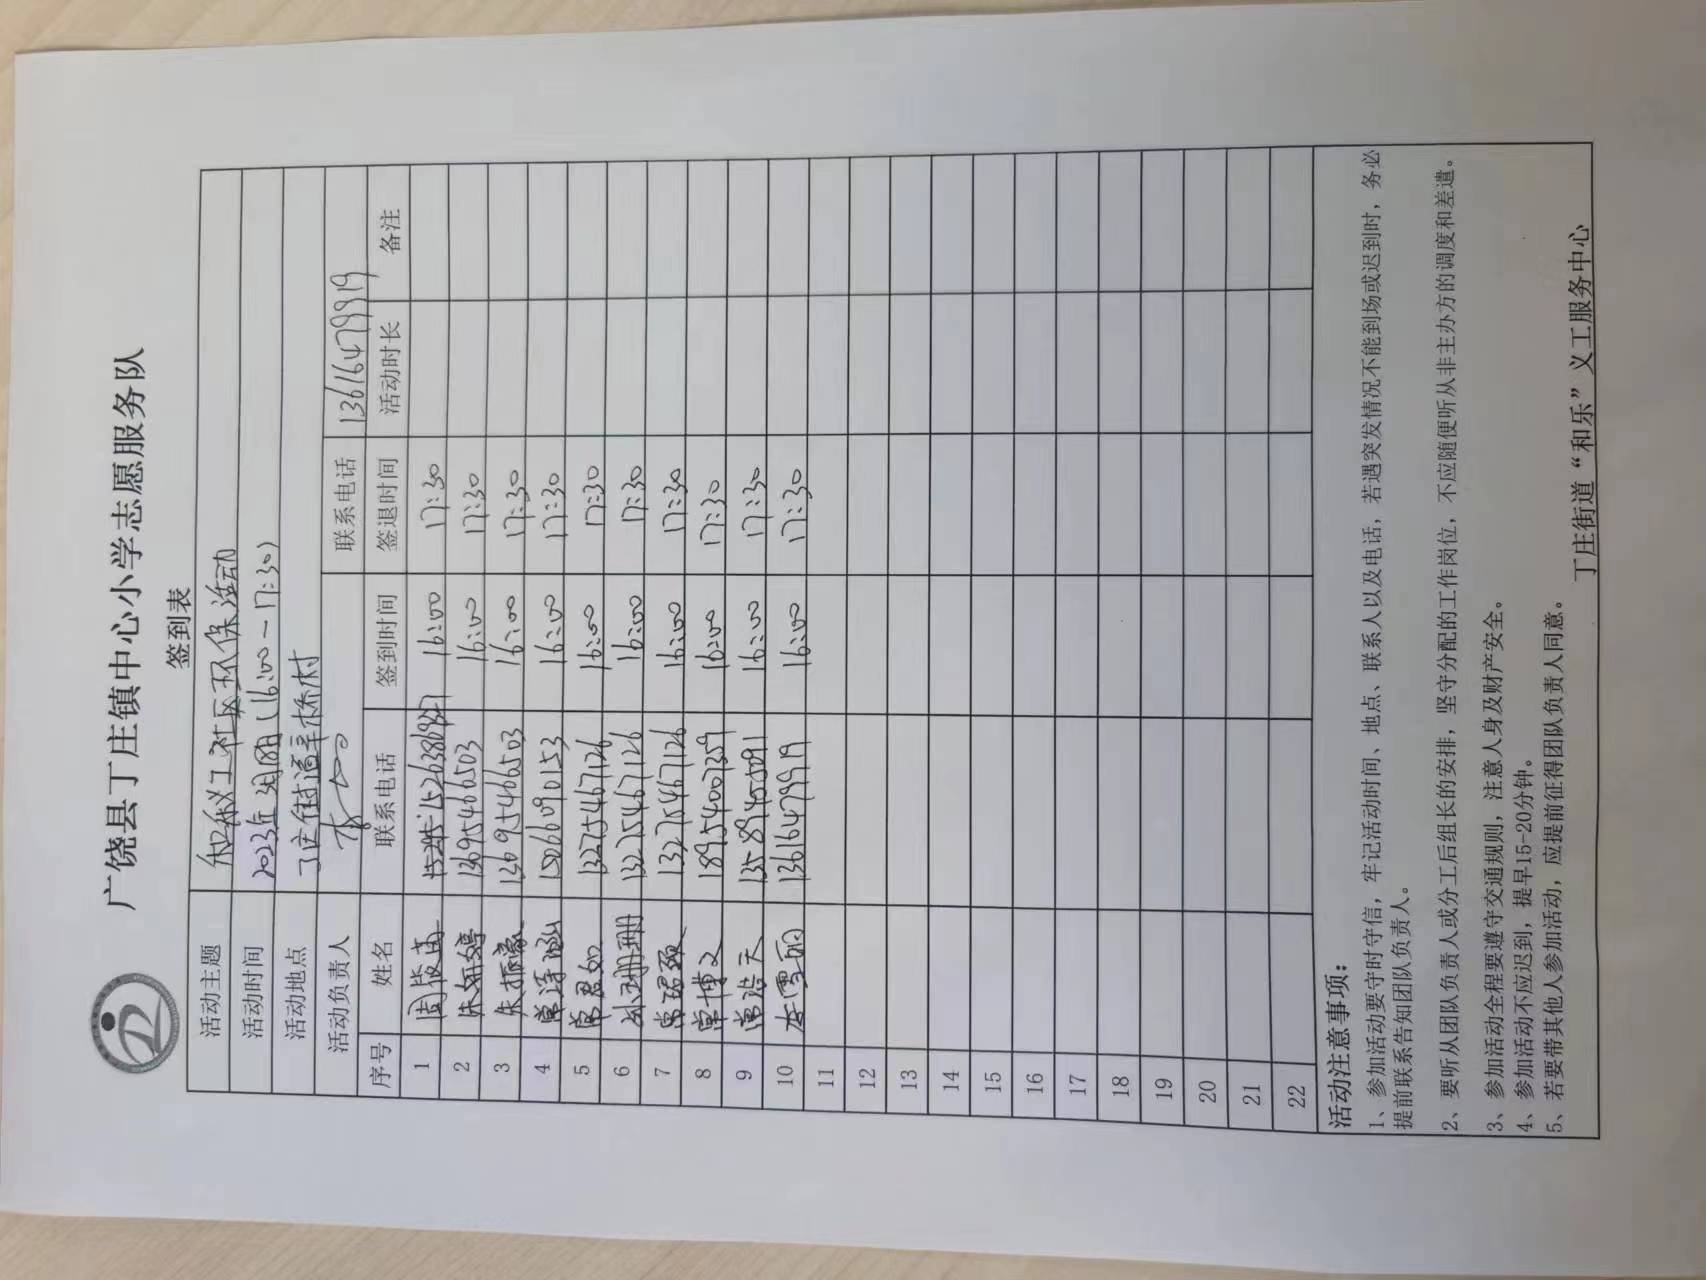 广饶县丁庄镇中心小学志愿服务队
签到表
活动主题 社区环保活动
活动时间 2023年 (16:00-17:30)
活动地点
活动负责人 联系电话 13616479919
序号 姓名 联系电话 签到时间 签退时间 活动时长 备注
1 15263869827 16:00 17:30
2 朱妍婷 13695466503 16:00 17:30
3 朱振豪 13695466503 16:00 17:30
4 常涛涵 15066090153 16:00 17:30
5 常君如 13275467126 16:00 17:30
6 孙珊珊 13275467126 16:00 17:30
7 13275467126 16:00 17:30
8 常博文 18954007359 16:00 17:30
9 常浩天 16:00 17:30
10 李雪丽 13616479919 16:00 17:30
11
12
13
14
15
16
17
18
19
20
21
22
活动注意事项：
1、参加活动要守时守信，牢记活动时间、地点、联系人以及电话，若遇突发情况不能到场或迟到时，务必
提前联系告知团队负责人。
2、要听从团队负责人或分工后组长的安排，坚守分配的工作岗位，不应随便听从非主办方的调度和差遣。
3、参加活动全程要遵守交通规则，注意人身及财产安全。
4、参加活动不应迟到，提早15-20分钟。
5、若要带其他人参加活动，应提前征得团队负责人同意。
丁庄街道“和乐”义工服务中心